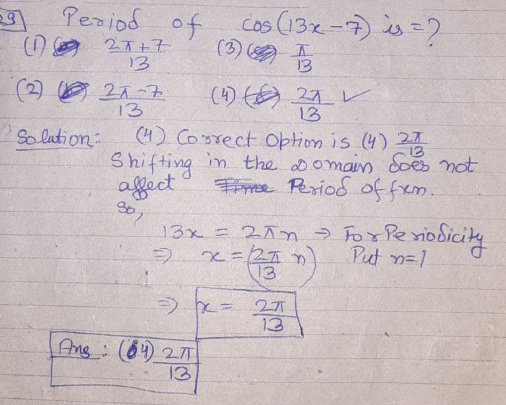 29) Period of cos(13x-7) is = ?
(1) (2π+7)/13 (3) π/13
(2) (2π-7)/13 (4) 2π/13 ✓
Solution:- (4) Correct Option is (4) 2π/13
Shifting in the domain does not
affect Period of fxn.
So,
13x = 2πn ⇒ For Periodicity
⇒ x = (2π/13 n) Put n=1
⇒ x = 2π/13
Ans : (4) 2π/13